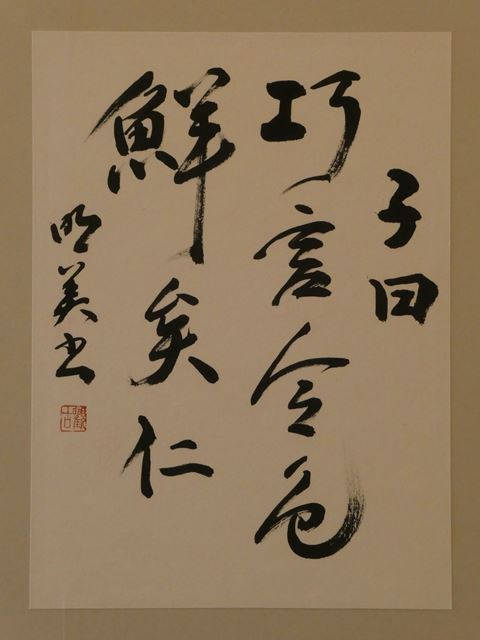 子曰
巧言令色
鮮矣仁
明美书